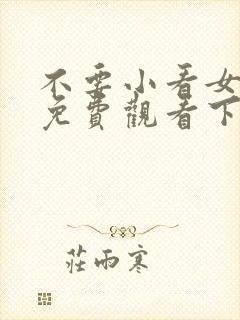 不要小看女
免費觀看下
莊雨寒